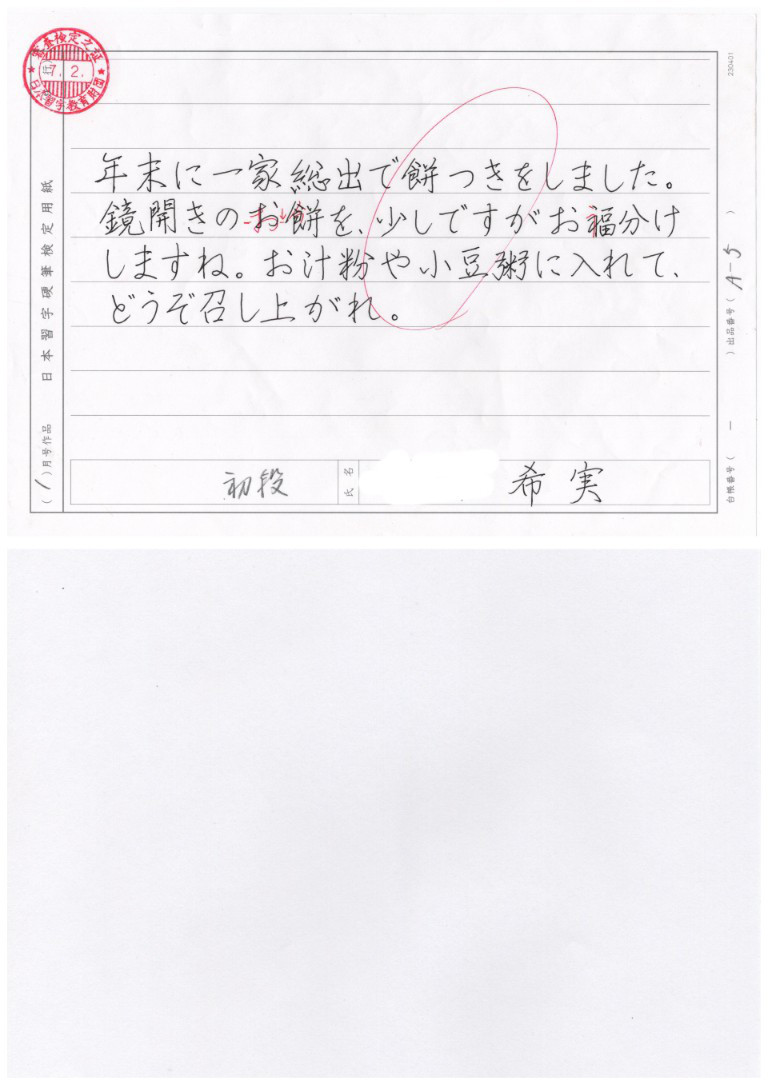 審査検定之証
7. 2.
日本習字教育財団
230401
日本習字硬筆検定用紙
(1)月号作品
年末に一家総出で餅つきをしました。
鏡開きのお餅を、少しですがお福分け
しますね。お汁粉や小豆粥に入れて、
どうぞ召し上がれ。
初段
氏名
希実
台帳番号( － )出品番号( A-5 )